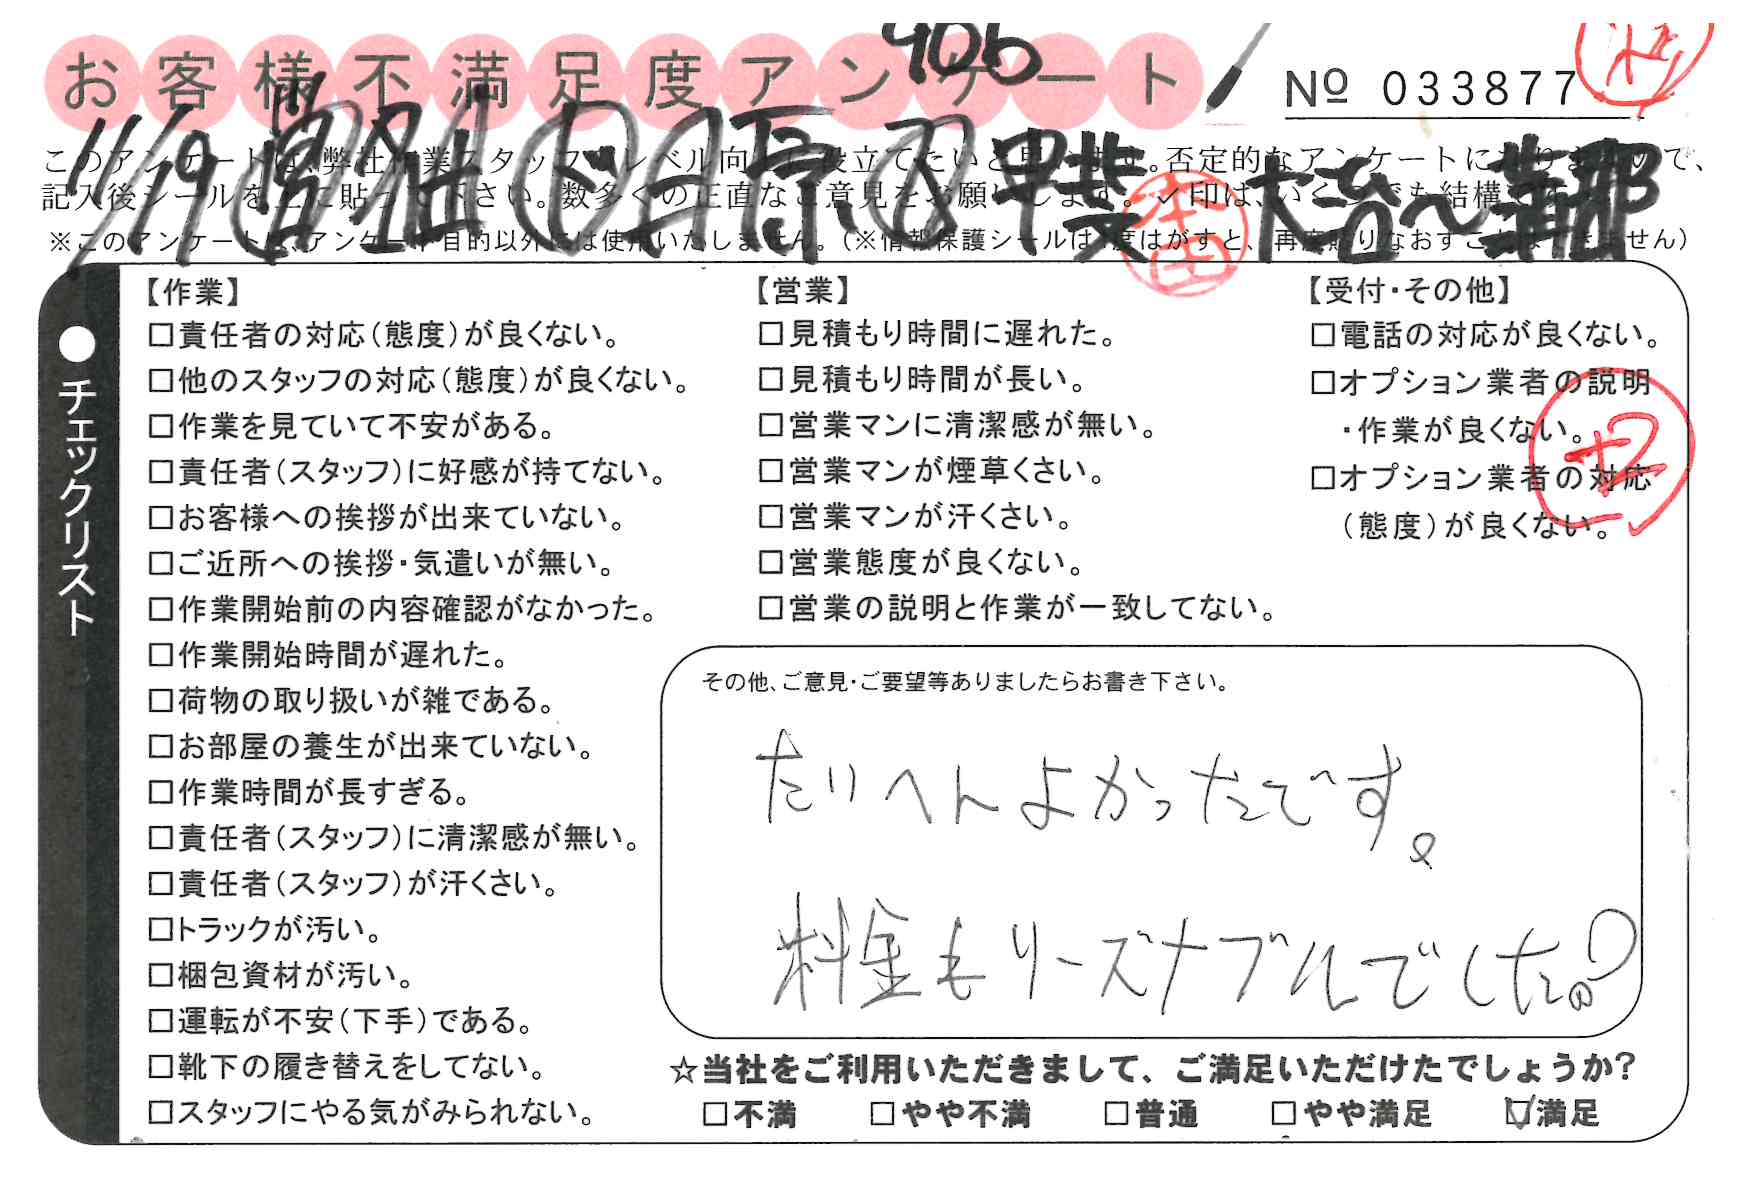 お客様不満足度アンケート
406
№ 033877
11/19
大治〜
このアンケートは、弊社作業スタッフのレベル向上に役立てたいと思います。否定的なアンケートになりますので、
記入後シールを上に貼って下さい。数多くの正直なご意見をお願いします。✓印は、いくつでも結構です。
※このアンケートは、アンケート目的以外には使用いたしません。（※情報保護シールは1度はがすと、再度貼りなおすことはできません）
本田
●チェックリスト
【作業】
□責任者の対応（態度）が良くない。
□他のスタッフの対応（態度）が良くない。
□作業を見ていて不安がある。
□責任者（スタッフ）に好感が持てない。
□お客様への挨拶が出来ていない。
□ご近所への挨拶・気遣いが無い。
□作業開始前の内容確認がなかった。
□作業開始時間が遅れた。
□荷物の取り扱いが雑である。
□お部屋の養生が出来ていない。
□作業時間が長すぎる。
□責任者（スタッフ）に清潔感が無い。
□責任者（スタッフ）が汗くさい。
□トラックが汚い。
□梱包資材が汚い。
□運転が不安（下手）である。
□靴下の履き替えをしてない。
□スタッフにやる気がみられない。
【営業】
□見積もり時間に遅れた。
□見積もり時間が長い。
□営業マンに清潔感が無い。
□営業マンが煙草くさい。
□営業マンが汗くさい。
□営業態度が良くない。
□営業の説明と作業が一致してない。
【受付・その他】
□電話の対応が良くない。
□オプション業者の説明
・作業が良くない。
□オプション業者の対応
（態度）が良くない。
+2
その他、ご意見・ご要望等ありましたらお書き下さい。
たいへんよかったです。
料金もリーズナブルでした。
☆当社をご利用いただきまして、ご満足いただけたでしょうか?
□不満 □やや不満 □普通 □やや満足 ☑満足